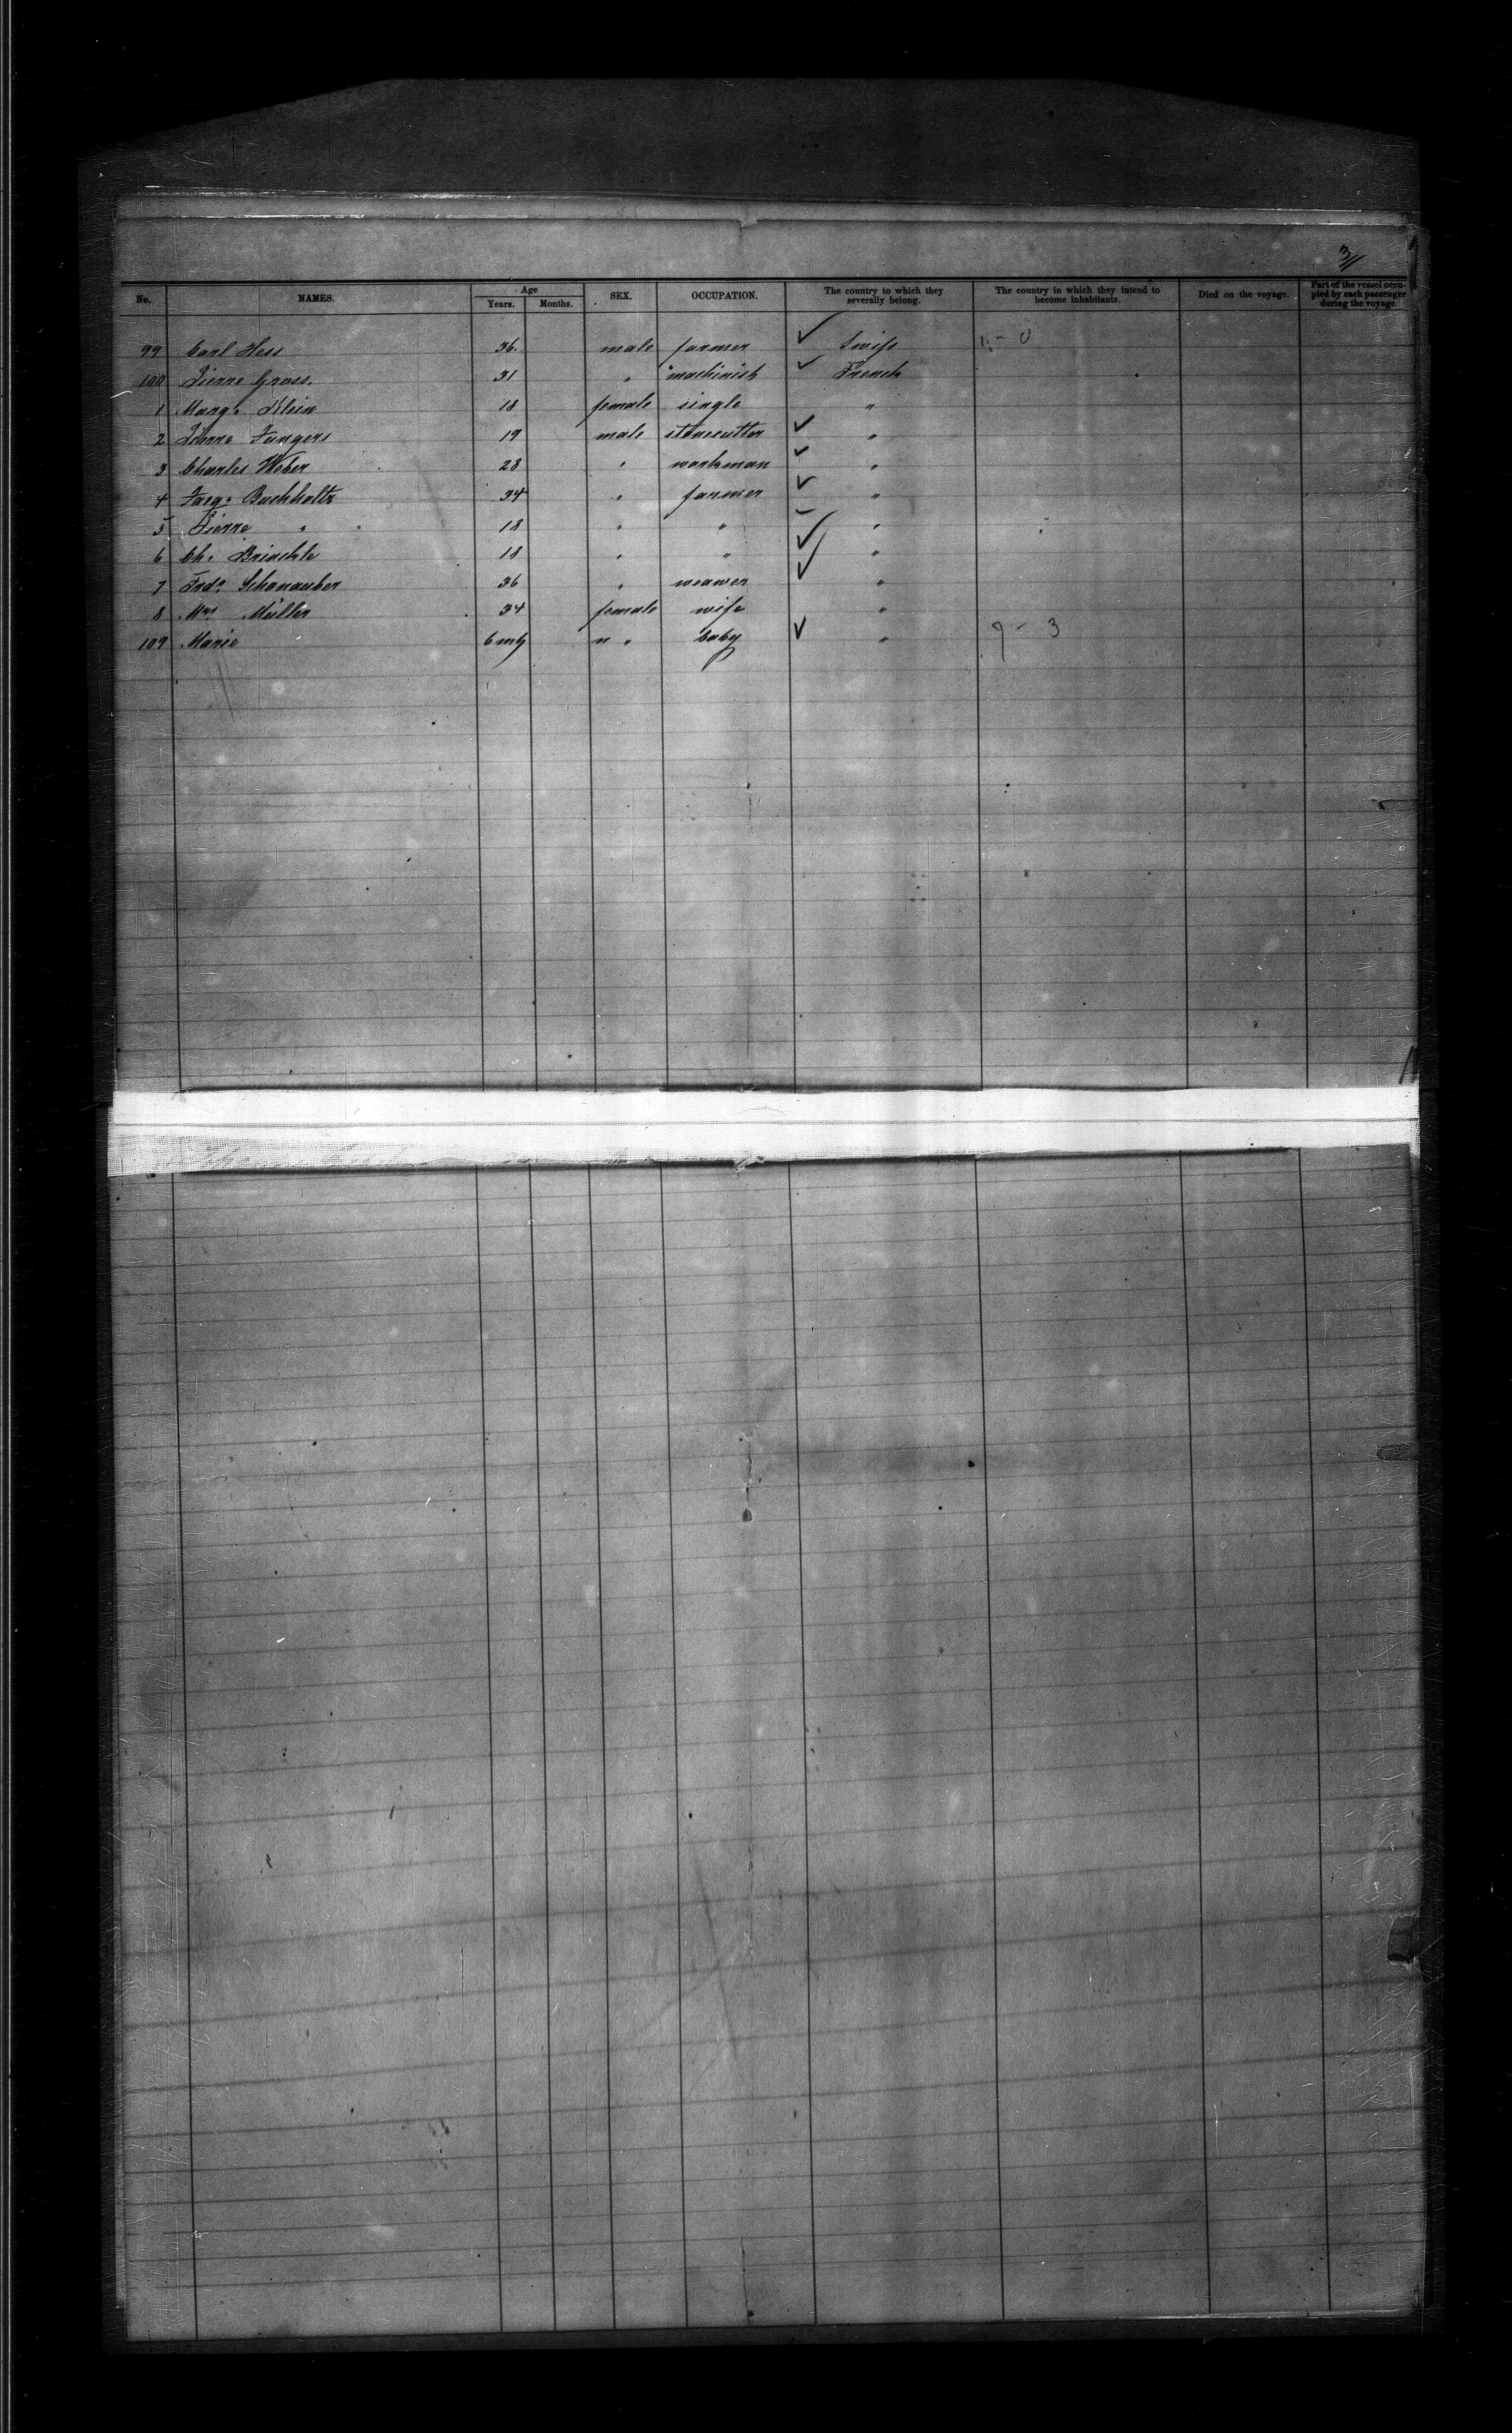 3/
No. NAMES. Age Years. Months. SEX. OCCUPATION. The country to which they severally belong. The country in which they intend to become inhabitants. Died on the voyage. Part of the vessel occupied by each passenger during the voyage.
99 Carl Hess 36. male farmer ✓ Swiss 11 - 0
100 Pierre Gross. 31 " machinist ✓ French
1 Marg. Klein 18 female single "
2 Pierre Jungers 19 male stonecutter ✓ "
3 Charles Weber 28 " workman ✓ "
4 Jacq. Buchholtz 34 " farmer ✓ "
5 Pierre " 18 " " "
6 Ch. 18 " " ✓ "
7 Fred. Schonauber 36 " weawer ✓ "
8 Mrs Müller 34 female wife "
109 Marie 6 mths " baby ✓ " 9 - 3